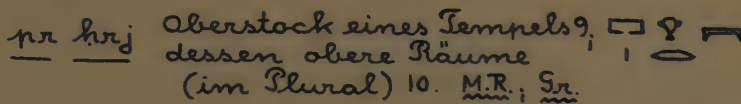 pr hrj Oberstock eines Tempels 9; 𓉐𓏤𓁷𓂋𓇯
dessen obere Räume
(im Plural) 10. M.R.; Gr.